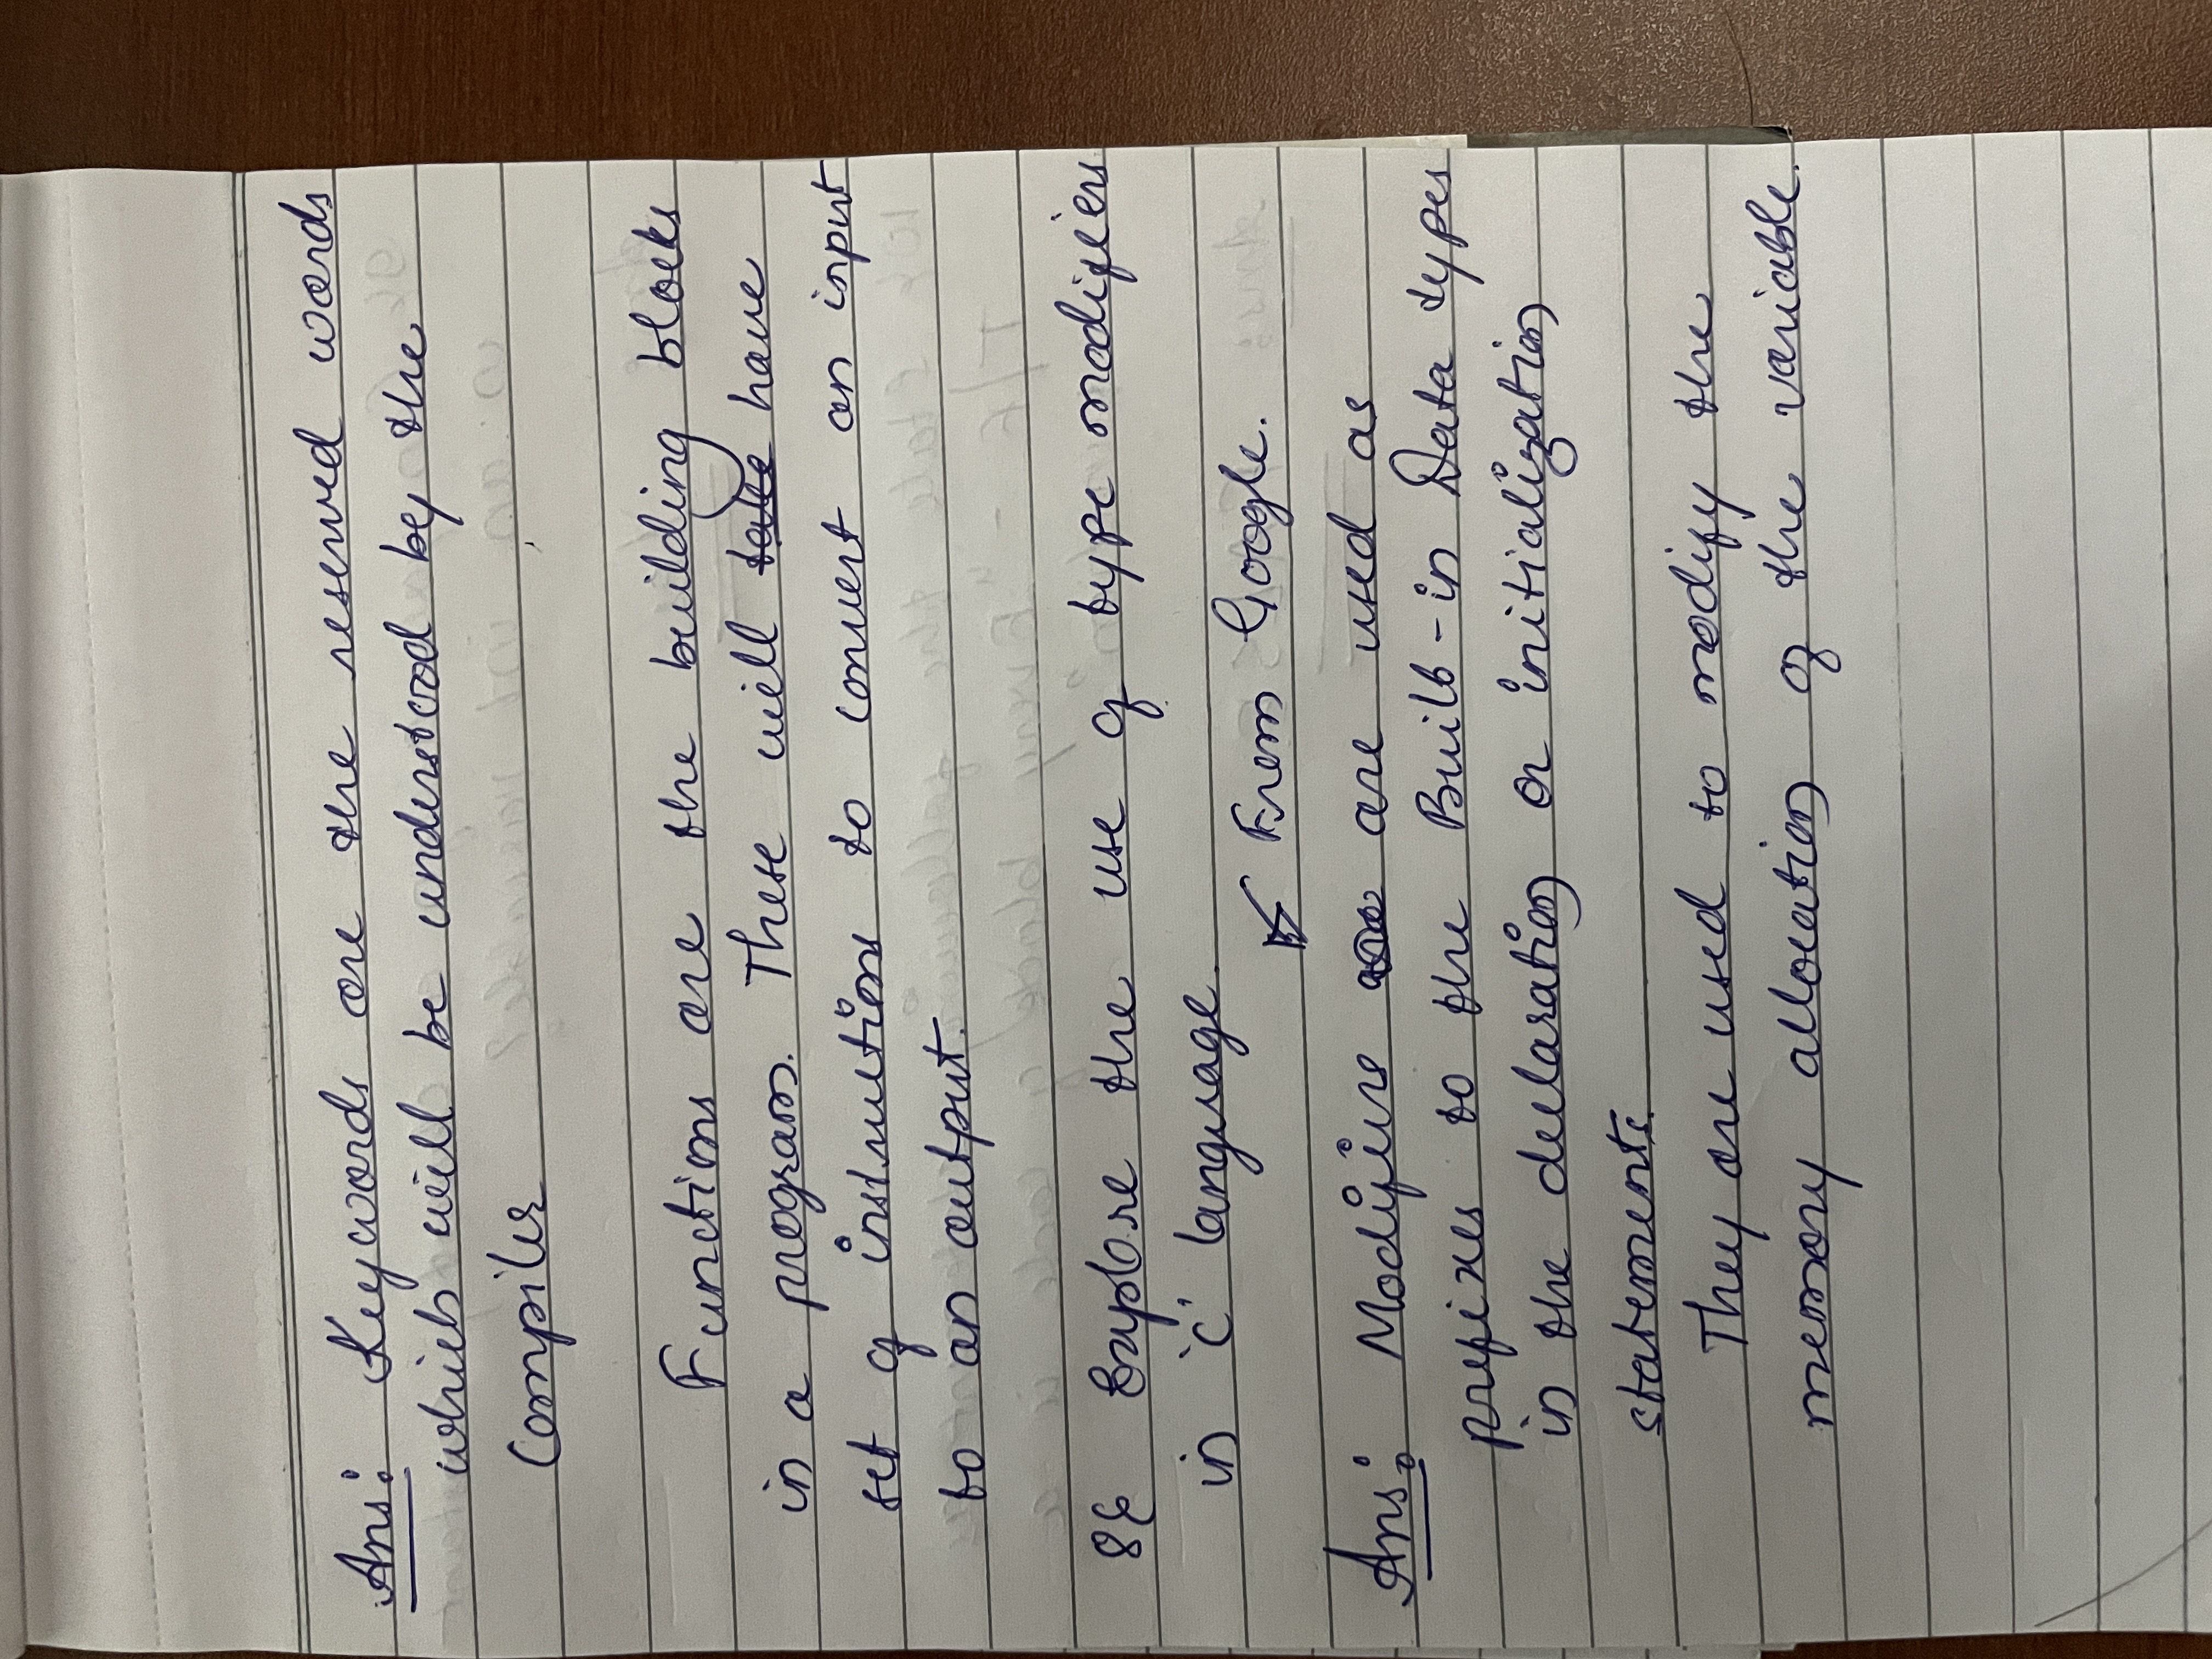 Ans: Keywords are the reserved words
which will be understood by the
Compiler
Functions are the building blocks
in a program. These will take have
set of instructions to convert an input
to an output.
8) Explore the use of type modifiers
in 'C' language.
From Google.
Ans: Modifiers are used as
prefixes to the Built-in Data types
in the declaration or initialization
statements.
They are used to modify the
memory allocation of the variable.